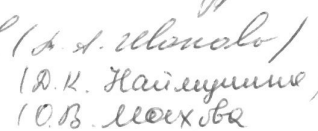 (А. А. Иванова)
(Д. К. Наймушина,
(О. В. Махова